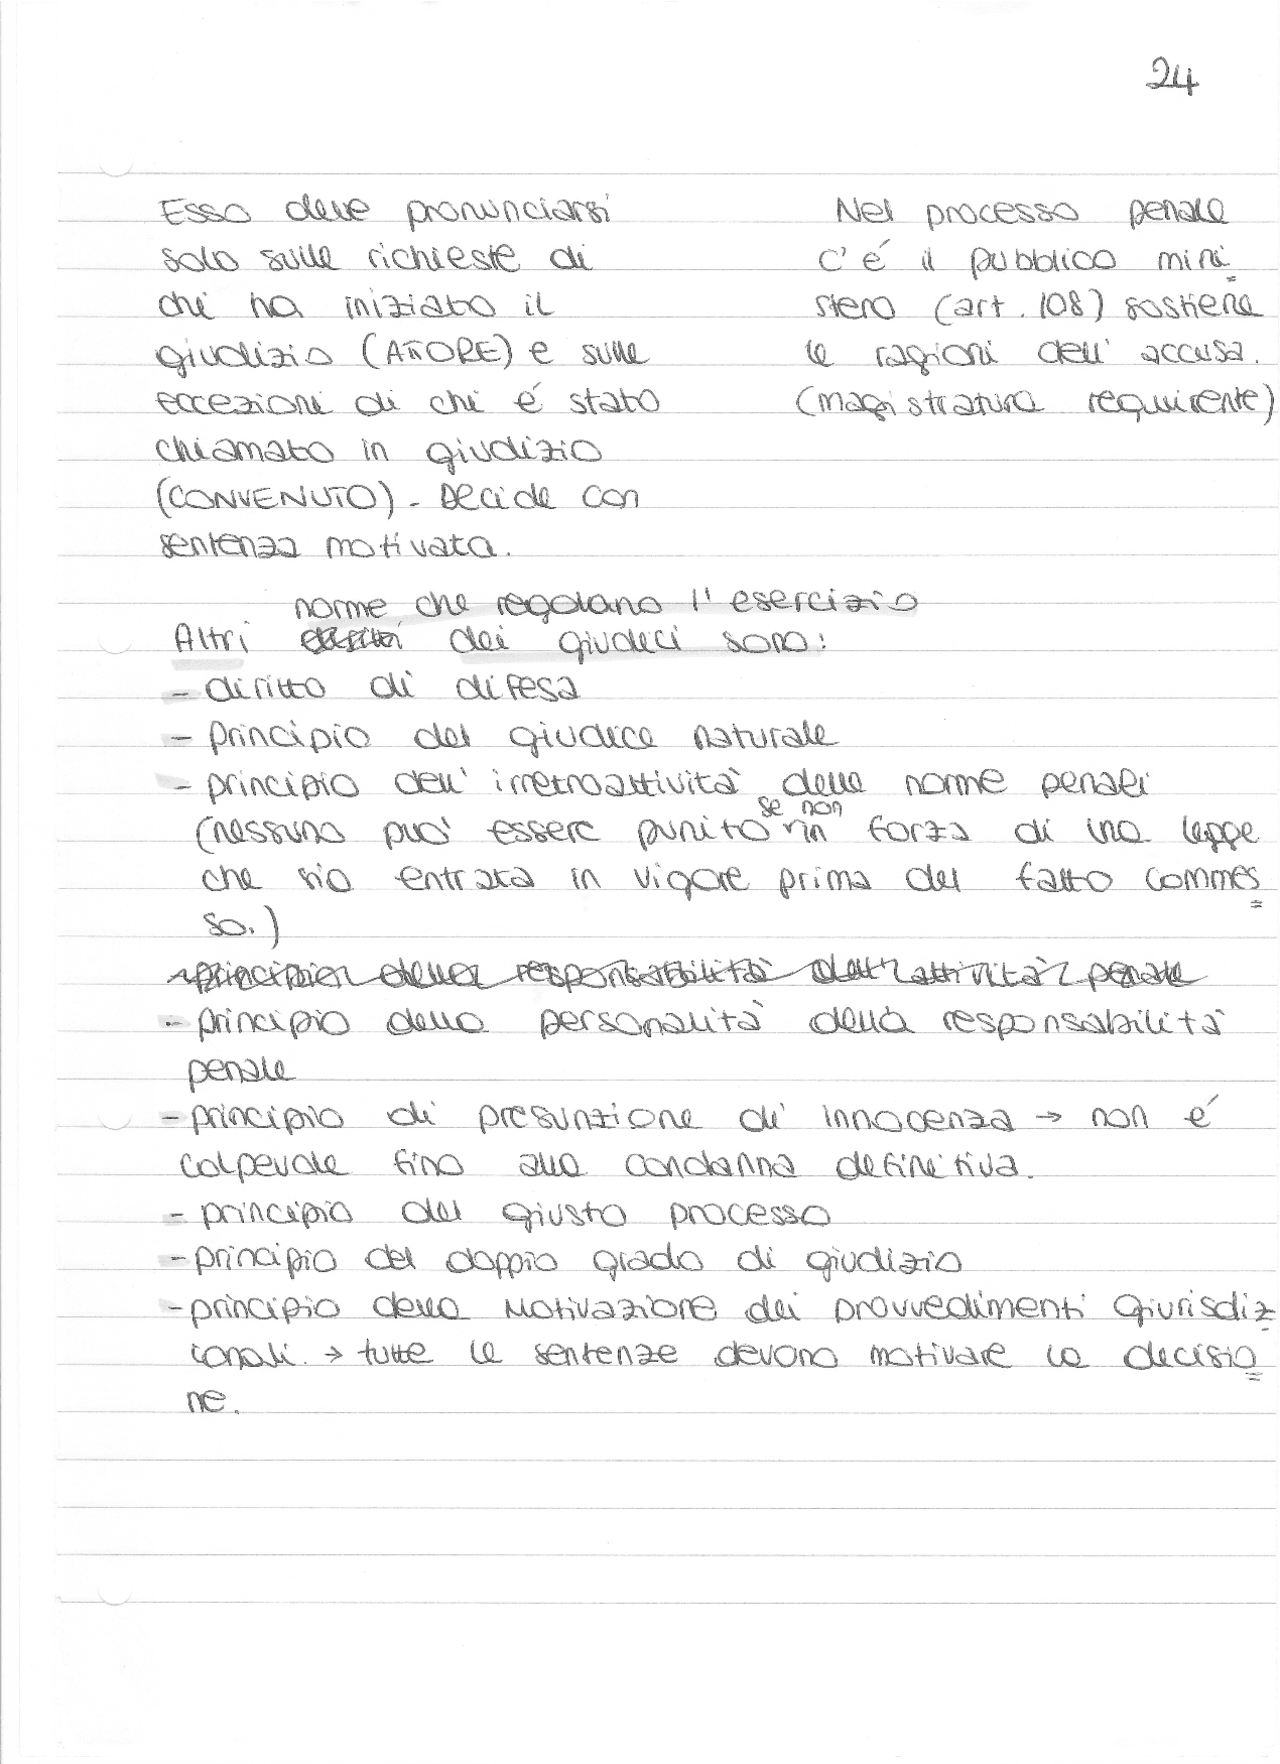 24
Esso deve pronunciarsi
solo sulle richieste di
chi ha iniziato il
giudizio (ATTORE) e sulle
eccezioni di chi é stato
chiamato in giudizio
(CONVENUTO) - Decide con
sentenza motivata.
Nel processo penale
c'é il pubblico mini
stero (art. 108) sostiene
le ragioni dell'accusa.
(magistratura requirente)
norme che regolano l'esercizio
Altri dei giudeci sono:
- diritto di difesa
- principio del giudice naturale
- principio dell'irretroattività delle norme penali
se non
(nessuno può essere punito in forza di una legge
che sia entrata in vigore prima del fatto commes
so.)
- principio della responsabilità dell'attività penale
- principio della personalità della responsabilità
penale
- principio di presunzione di innocenza → non é
colpevole fino alla condanna definitiva.
- principio del giusto processo
- principio del doppio grado di giudizio
- principio della motivazione dei provvedimenti giurisdiz
ionali. → tutte le sentenze devono motivare la decisio
ne.